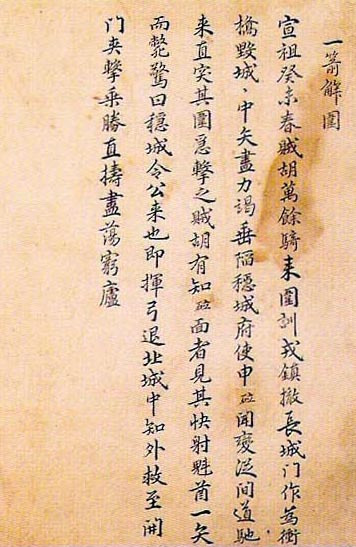 一箭解圍
宣祖癸未春賊胡萬餘騎来圍訓戎鎮撤長城門作為衝
橋毀城中矢盡力竭垂陷穩城府使申砬聞變從間道馳
来直突其圍急擊之賊胡有知砬面者見其快射魁酋一矢
而斃驚曰穩城令公来也即揮弓退北城中知外救至開
门夾擊乗勝直擣盡蕩窮廬